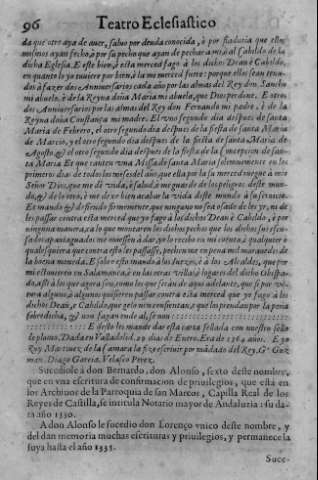 96 Teatro Eclesiastico
da que otro aya de auer, saluo por deuda conocida, ò por fiaduria que ellos
mismos ayan fecho, ò por su pecho que ayan de pechar a mi ò al Cabildo de la
dicha Eglesia. E este bien, è esta merced fago à los dichos Dean è Cabildo,
en quanto lo yo tuuiere por bien, è la mi merced fuere: porque ellos sean tenu-
dos à fazer dos Anniuersarios cada año por las almas del Rey don Sancho
mi abuelo, è de la Reyna doña Maria mi abuela, que Dios perdone. E otros
dos Anniuersarios por las almas del Rey don Fernando mi padre, è de la
Reyna doña Constança mi madre. El vno segundo dia despues de santa
Maria de Febrero, el otro segundo dia despues de la fiesta de santa Maria
de Março, y el otro segundo dia despues de la fiesta de santa Maria de
Agosto & el otro segundo dia despues de la fiesta de la Concepcion de san-
ta Maria Et que canten vna Missa de santa Maria solemnemente en los
primeros dias de todos los meses del año, que ella por la su merced ruegue à mio
Señor Dios, que me dè vida, è salud, è me guarde de los peligros deste mun-
do, & de lo otro, è me dexe bien acabar la vida deste mundo à su seruicio.
Et mando & defiendo firmemente, que ninguno no sea osado de les yr, ni de
les passar contra esta merced que yo fago à los dichos Dean è Cabildo, è por
ninguna manera, ca lo que montaren los dichos pechos que los dichos sus escu-
sados apaniaguados me ouiessen à dar, yo lo recibo en mi cuenta, è qualquier ò
qualesquiera que contra esto les passasse, pecharme en pena mil marauedis de
la buena moneda. E sobre esto mando à los Iuezes, è à los Alcaldes, que por
mi estouieren en Salamanca, è en las otras villas è logares del dicho Obispa-
do, assi à los que agora son, como los que seràn de aqui adelante, que si por vē-
tura alguno ò algunos quisieren passar contra esta merced que yo fago à los
dichos Dean, è Cabildo que gelo non consientan, è que los prendan por la pena
sobredicha, & non fagan ende al, se non
E desto les mande dar esta carta sellada con nuestro sello
de plomo, Dada en Valladolid, 29 dias de Enero. Era de 1364 años. E yo
Ruy Martinez de la Camara la fize escriuir por mādado del Rey. Gº Guz
man. Diego Garcia. Velasco Perez.
Sucediole a don Bernardo, don Alonso, sexto deste nombre,
que en vna escritura de confirmacion de priuilegios, que està en
los Archiuos de la Parroquia de san Marcos, Capilla Real de los
Reyes de Castilla, se intitula Notario mayor de Andaluzia: su da-
ta año 1330.
A don Alonso le sucedio don Lorenço vnico deste nombre, y
del dan memoria muchas escrituras y priuilegios, y permanece la
suya hasta el año 1335.
Suce-